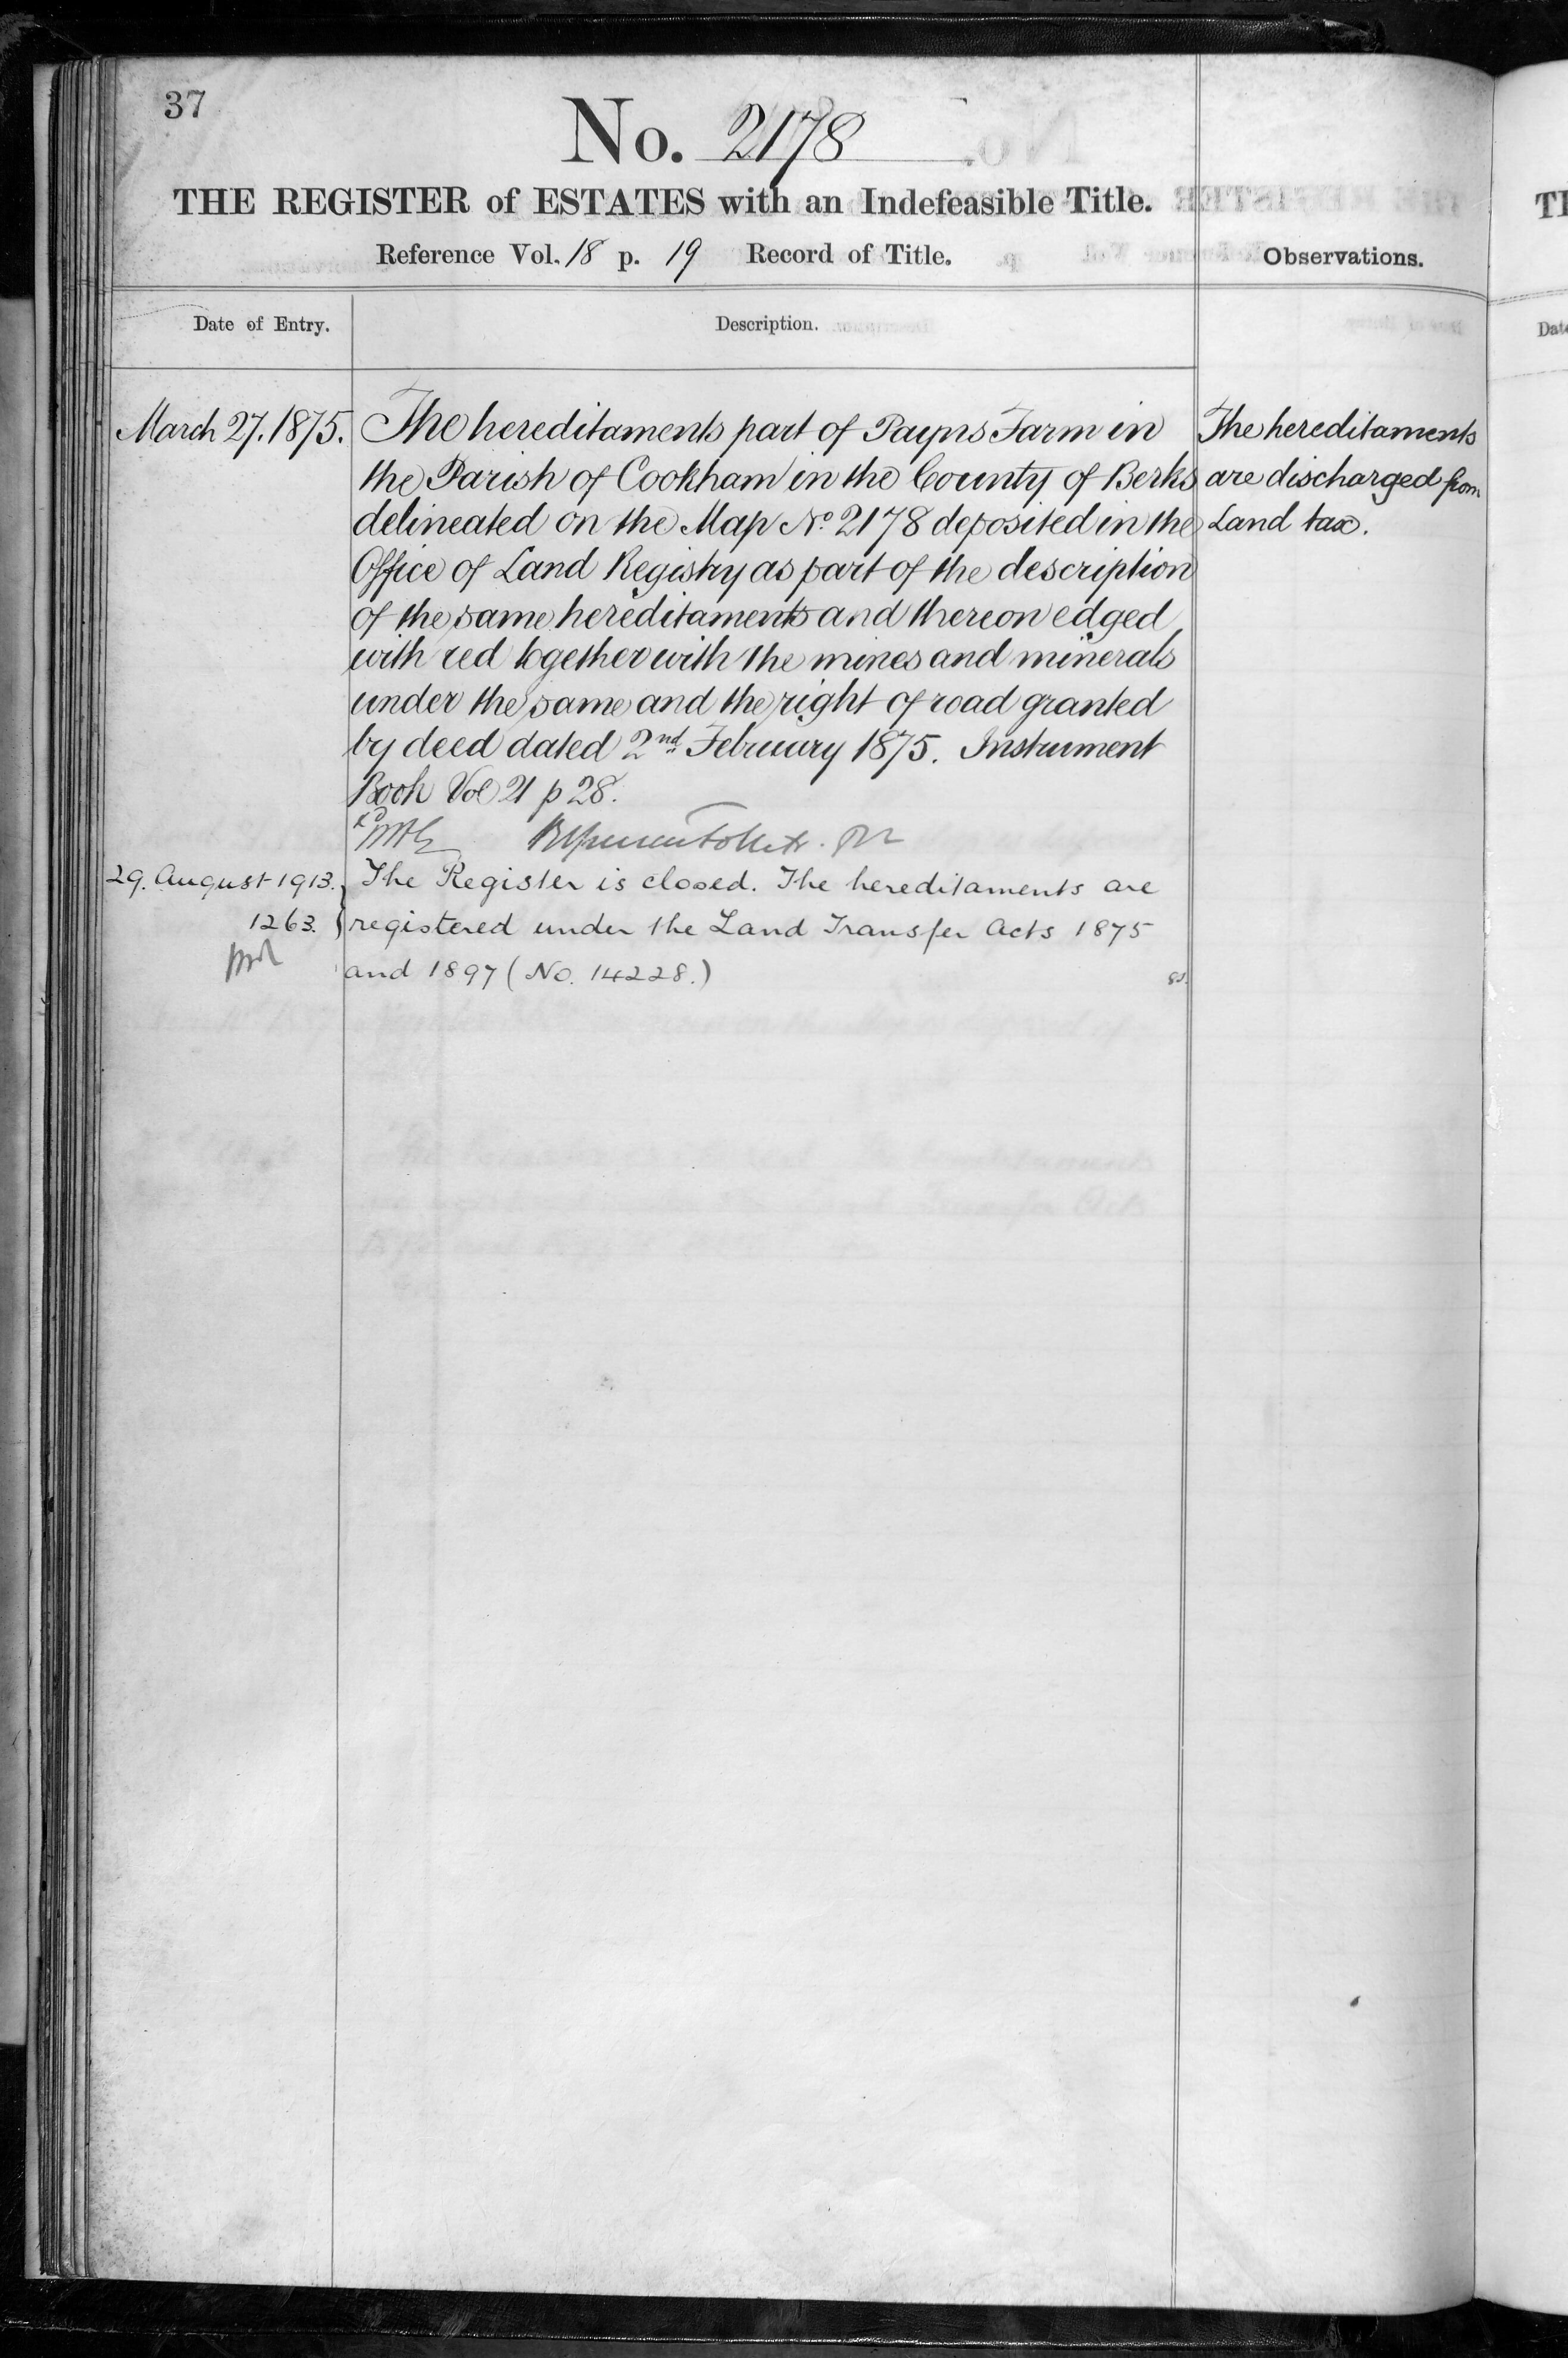 37
No. 2178
THE REGISTER of ESTATES with an Indefeasible Title.
Reference Vol. 18 p. 19 Record of Title.
Observations.
Date of Entry.
Description.
March 27. 1875.
The hereditaments part of Payns Farm in
the Parish of Cookham in the County of Berks
delineated on the Map No. 2178 deposited in the
Office of Land Registry as part of the description
of the same hereditaments and thereon edged
with red together with the mines and minerals
under the same and the right of road granted
by deed dated 2nd February 1875. Instrument
Book Vol 21 p 28.
The hereditaments
are discharged from
Land tax.
29. August 1913.
1263.
The Register is closed. The hereditaments are
registered under the Land Transfer Acts 1875
and 1897 (No. 14228.)